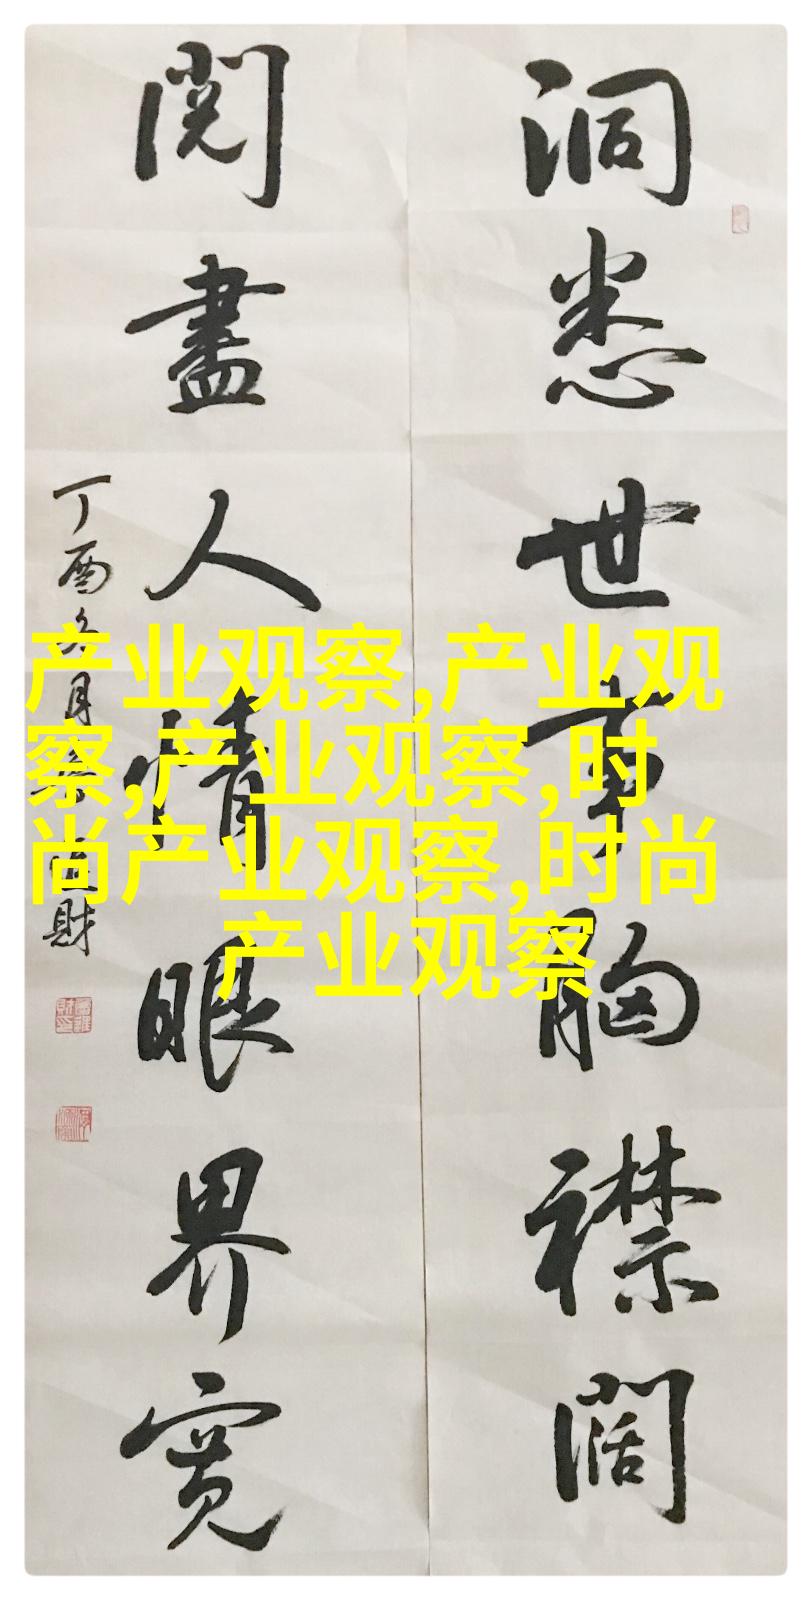 洞悉世事胸襟阔
閲盡人情眼界寬
丁酉冬月
財
产业观察,产业观
察,产业观察,时
尚产业观察,时尚
产业观察